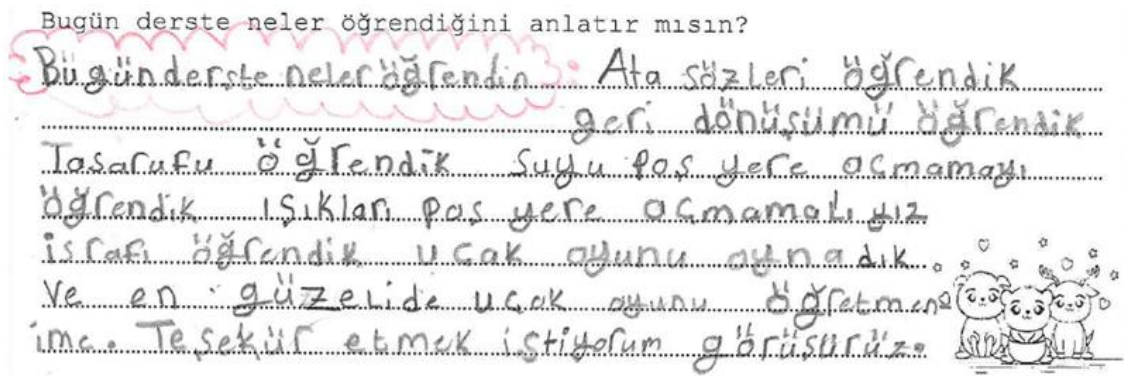 Bugün derste neler öğrendiğini anlatır mısın?
Bügün derste neler öğrendin: Ata sözleri öğrendik
geri dönüşümü öğrendik
Tasarufu öğrendik suyu poş yere açmamayı
öğrendik ışıkları poş yere açmamalıyız
israfı öğrendik uçak oyunu oynadık.
Ve en güzelide uçak oyunu öğretmen
ime. Teşekür etmek istiyorum görüşürüz.